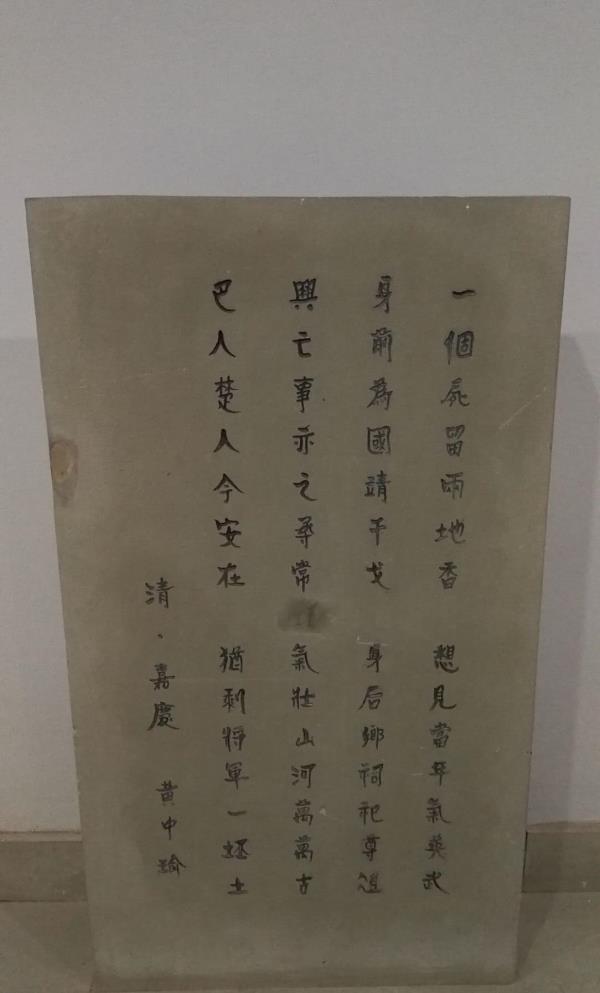 一個屍留兩地香 想見當年氣英武
身前為國靖干戈 身后鄉祠祀尊俎
興亡事亦之尋常 氣壯山河萬萬古
巴人楚人今安在 猶剩將軍一坯土
清·嘉慶 黄中瑜